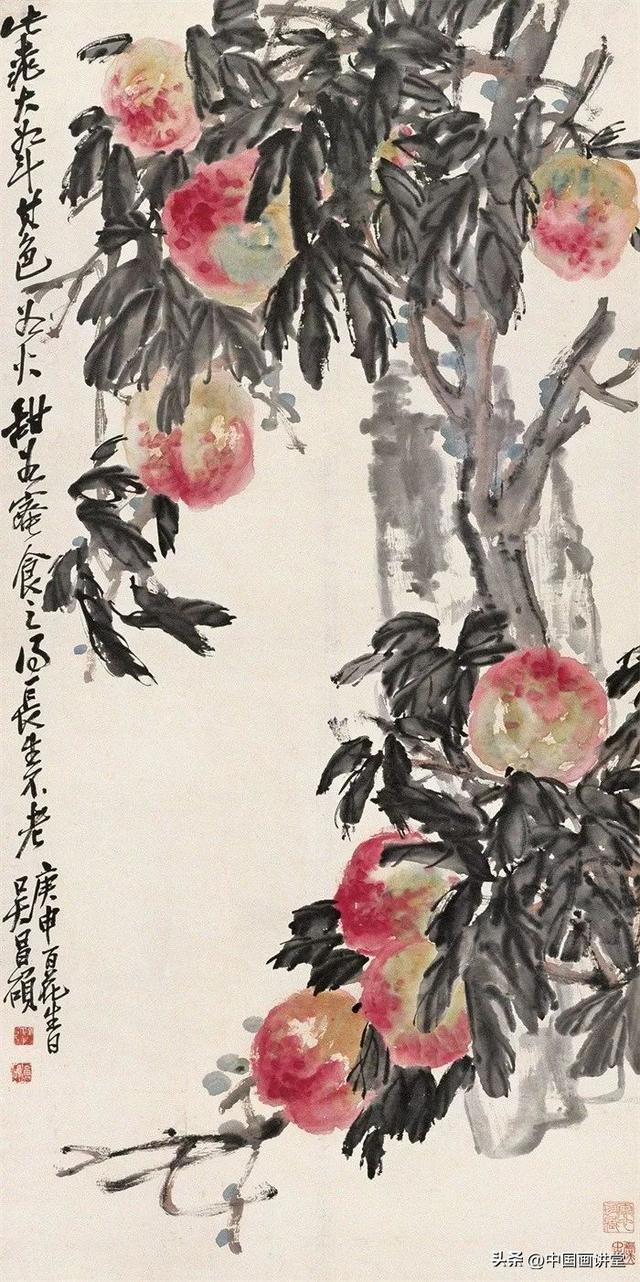 此桃大如斗其色如火甜如蜜食之得長生不老
庚申百花生日
吳昌碩
头条 @中国画讲堂